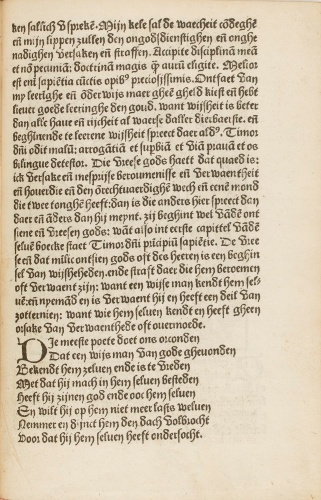 ken salich v spreken. Mijn kele sal de waerheit ouerdenken
en mijn lippen zullen den ongodsdienstighen en onghe
nadighen versaken en straffen. Accipite disciplinā meā
et nō pecuniā: doctrinā magis q̄ aurū eligite. Melior
est em̄ sapiētia cūctis opib⁹ preciosissimis. Ontfaet van
my leerighe en̄ niet gheē gheld kiest en̄ hebt
lieuer goede leeringhe den goud. want wijsheit is beter
dan alle haue en̄ rijcheit al waerse daller dierbaerste. en̄
beghinnende te leerene wijsheit spreect daer ald⁹. Timor
dn̄i odit malū: arrogātiā et supbiā et viā prauā et os
bilingue detestor. Die vreese gods haett dat quaed is:
ick versake en̄ mesprijse beroumenisse en̄ verwaentheit
en̄ houerdie en̄ den onrechtuaerdighē wech en̄ eenē mond
die twee tonghē heeft: dan is die anders hier spreect dan
daer en̄ āders dan hij meynt. zij beghint wel vādē ont
siene en̄ vreesen gods: wāt also int eerste capittel vādē
seluē boecke staet Timor dn̄i pricipiū sapiētie. De vre
se en̄ dat milic ontsien gods oft des heeren is een beghin
sel van wijsheheden. ende straft daer die hem beroemen
oft verwaent zijn: want een wijse man kendt hem sel-
uē: en̄ nyemād en is verwaent hij en heeft een deil van
zotternien: want wie hem seluen kendt en heeft gheen
orsake van verwaenthede oft ouermoede.
Die meeste poete doet ons orconden
Dat een wijs man van gode ghevonden
Bekendt hem zeluen ende is te vreden
Met dat hij mach in hem seluen besteden
Heeft hij zijnen god ende ooc hem seluen
En wilt hij op hem niet meer lasts weluen
Nemmer en dinct hem den dach volbrocht
Voor dat hij hem seluen heeft ondersocht.